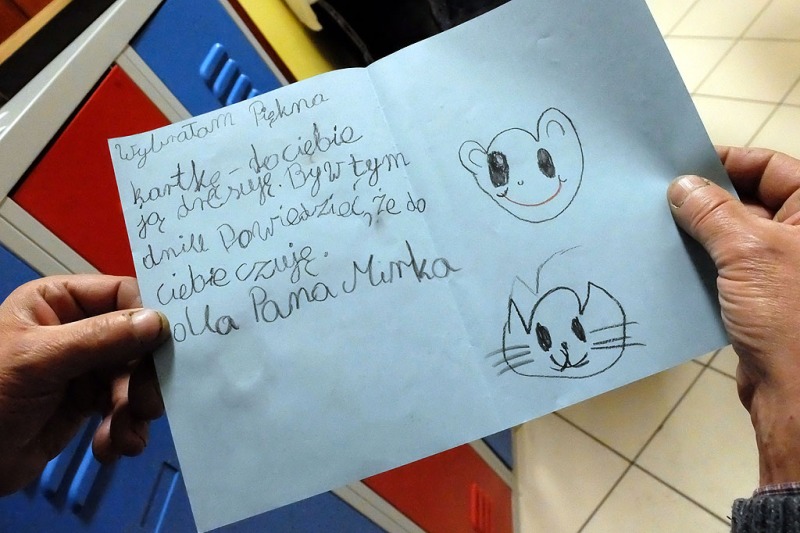 Wybrałam Piękną
kartkę - do ciebie
ją dresuję. By w tym
dniu Powiedzieć, że do
ciebie czuję.
dla Pana Mirka